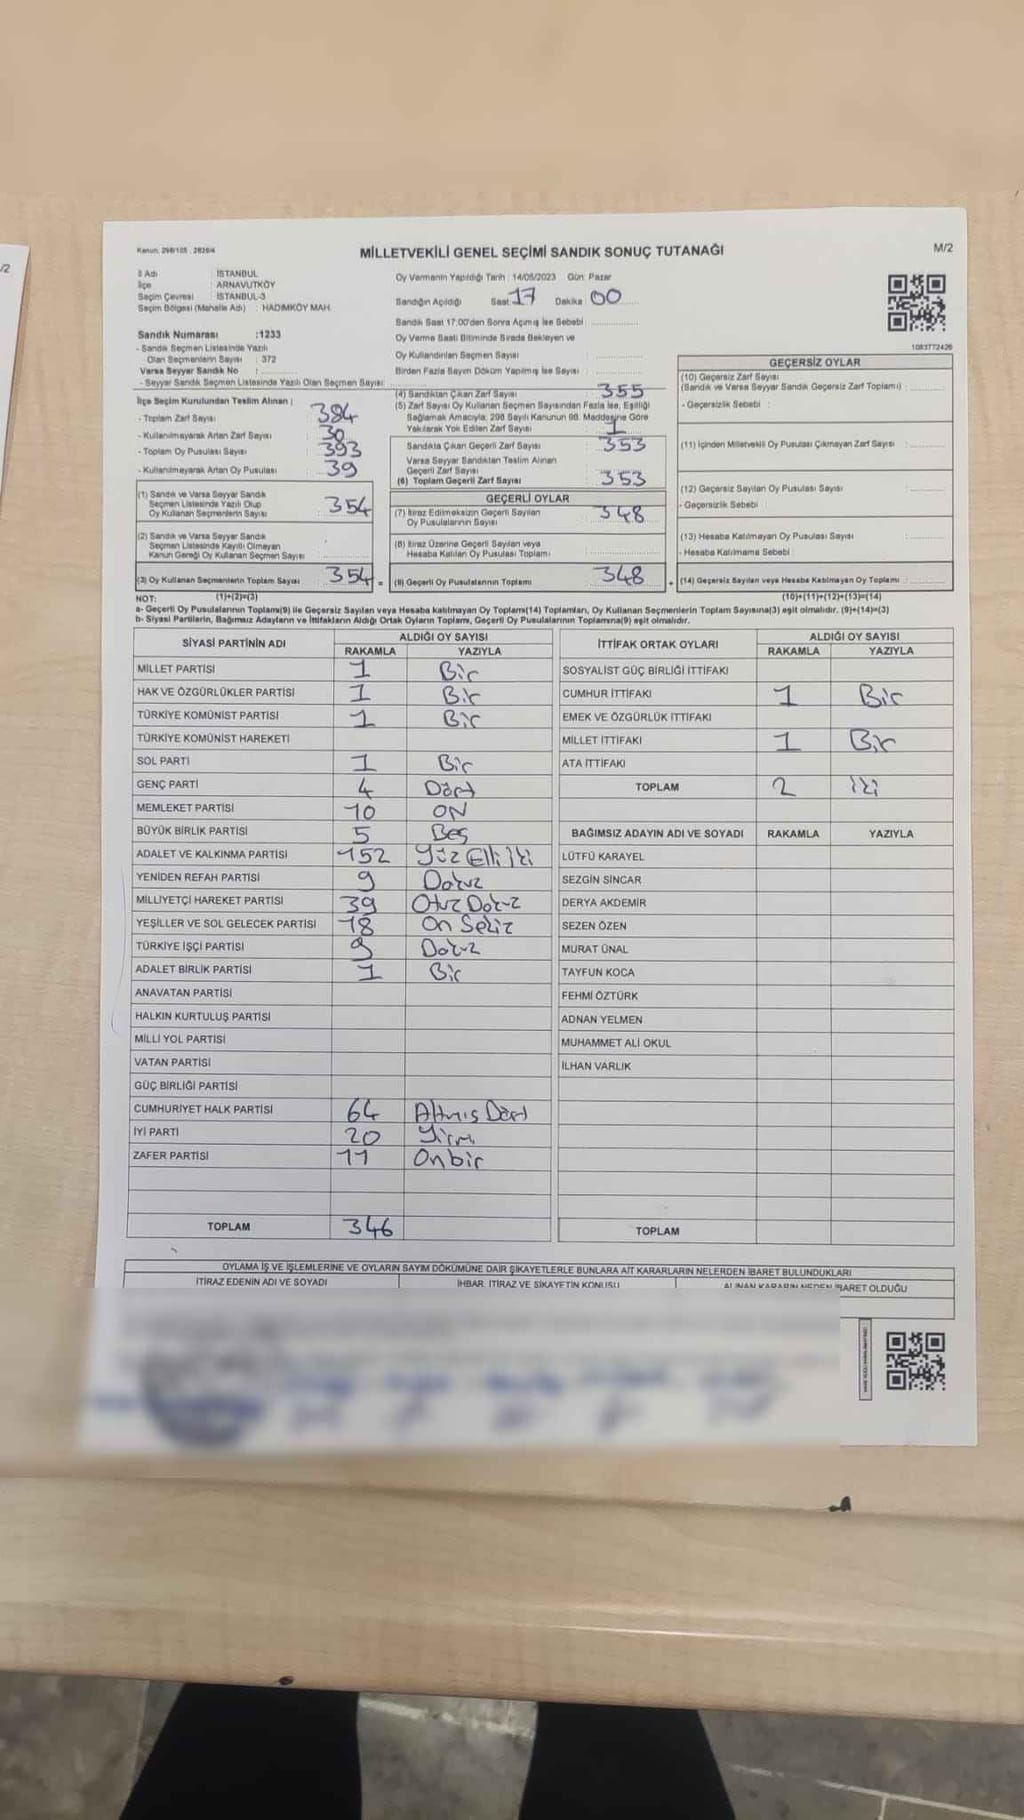 /2
Kanun: 298/105 , 2839/4
MİLLETVEKİLİ GENEL SEÇİMİ SANDIK SONUÇ TUTANAĞI
M/2
İl Adı : İSTANBUL
İlçe : ARNAVUTKÖY
Seçim Çevresi : İSTANBUL-3
Seçim Bölgesi (Mahalle Adı) : HADIMKÖY MAH.
Oy Vermenin Yapıldığı Tarih : 14/05/2023 Gün: Pazar
Sandığın Açıldığı Saat 17 Dakika 00
Sandık Saat 17:00'den Sonra Açımış İse Sebebi :
Sandık Numarası :1233
- Sandık Seçmen Listesinde Yazılı
Olan Seçmenlerin Sayısı : 372
Varsa Seyyar Sandık No :
- Seyyar Sandık Seçmen Listesinde Yazılı Olan Seçmen Sayısı:
Oy Verme Saati Bitiminde Sırada Bekleyen ve
Oy Kullandırılan Seçmen Sayısı :
Birden Fazla Sayım Döküm Yapılmış İse Sayısı :
1083772426
İlçe Seçim Kurulundan Teslim Alınan ;
- Toplam Zarf Sayısı : 384
- Kullanılmayarak Artan Zarf Sayısı : 30
- Toplam Oy Pusulası Sayısı : 393
- Kullanılmayarak Artan Oy Pusulası : 39
(1) Sandık ve Varsa Seyyar Sandık
Seçmen Listesinde Yazılı Olup
Oy Kullanan Seçmenlerin Sayısı : 354
(2) Sandık ve Varsa Seyyar Sandık
Seçmen Listesinde Kayıtlı Olmayan
Kanun Gereği Oy Kullanan Seçmen Sayısı
(3) Oy Kullanan Seçmenlerin Toplam Sayısı : 354 =
(4) Sandıktan Çıkan Zarf Sayısı : 355
(5) Zarf Sayısı Oy Kullanan Seçmen Sayısından Fazla İse, Eşitliği
Sağlamak Amacıyla; 298 Sayılı Kanunun 98. Maddesine Göre
Yakılarak Yok Edilen Zarf Sayısı : 1
Sandıkta Çıkan Geçerli Zarf Sayısı : 353
Varsa Seyyar Sandıktan Teslim Alınan
Geçerli Zarf Sayısı
(6) Toplam Geçerli Zarf Sayısı : 353
GEÇERLİ OYLAR
(7) İtiraz Edilmeksizin Geçerli Sayılan
Oy Pusulalarının Sayısı : 348
(8) İtiraz Üzerine Geçerli Sayılan veya
Hesaba Katılan Oy Pusulası Toplamı
(9) Geçerli Oy Pusulalarının Toplamı : 348 +
GEÇERSİZ OYLAR
(10) Geçersiz Zarf Sayısı
(Sandık ve Varsa Seyyar Sandık Geçersiz Zarf Toplamı) :
- Geçersizlik Sebebi :
(11) İçinden Milletvekili Oy Pusulası Çıkmayan Zarf Sayısı :
(12) Geçersiz Sayılan Oy Pusulası Sayısı :
- Geçersizlik Sebebi :
(13) Hesaba Katılmayan Oy Pusulası Sayısı :
- Hesaba Katılmama Sebebi :
(14) Geçersiz Sayılan veya Hesaba Katılmayan Oy Toplamı :
NOT: (1)+(2)=(3) (10)+(11)+(12)+(13)=(14)
a- Geçerli Oy Pusulalarının Toplamı(9) ile Geçersiz Sayılan veya Hesaba Katılmayan Oy Toplamı(14) Toplamları, Oy Kullanan Seçmenlerin Toplam Sayısına(3) eşit olmalıdır. (9)+(14)=(3)
b- Siyasi Partilerin, Bağımsız Adayların ve İttifakların Aldığı Ortak Oyların Toplamı, Geçerli Oy Pusulalarının Toplamına(9) eşit olmalıdır.
SİYASİ PARTİNİN ADI ALDIĞI OY SAYISI
RAKAMLA YAZIYLA
MİLLET PARTİSİ 1 Bir
HAK VE ÖZGÜRLÜKLER PARTİSİ 1 Bir
TÜRKİYE KOMÜNİST PARTİSİ 1 Bir
TÜRKİYE KOMÜNİST HAREKETİ
SOL PARTİ 1 Bir
GENÇ PARTİ 4 Dört
MEMLEKET PARTİSİ 10 ON
BÜYÜK BİRLİK PARTİSİ 5 Beş
ADALET VE KALKINMA PARTİSİ 152 Yüz Elli İki
YENİDEN REFAH PARTİSİ 9 Dokuz
MİLLİYETÇİ HAREKET PARTİSİ 39 Otuz Dokuz
YEŞİLLER VE SOL GELECEK PARTİSİ 18 On Sekiz
TÜRKİYE İŞÇİ PARTİSİ 9 Dokuz
ADALET BİRLİK PARTİSİ 1 Bir
ANAVATAN PARTİSİ
HALKIN KURTULUŞ PARTİSİ
MİLLİ YOL PARTİSİ
VATAN PARTİSİ
GÜÇ BİRLİĞİ PARTİSİ
CUMHURİYET HALK PARTİSİ 64 Altmış Dört
İYİ PARTİ 20 Yirmi
ZAFER PARTİSİ 11 Onbir
TOPLAM 346
İTTİFAK ORTAK OYLARI ALDIĞI OY SAYISI
RAKAMLA YAZIYLA
SOSYALİST GÜÇ BİRLİĞİ İTTİFAKI
CUMHUR İTTİFAKI 1 Bir
EMEK VE ÖZGÜRLÜK İTTİFAKI
MİLLET İTTİFAKI 1 Bir
ATA İTTİFAKI
TOPLAM 2 İki
BAĞIMSIZ ADAYIN ADI VE SOYADI RAKAMLA YAZIYLA
LÜTFÜ KARAYEL
SEZGİN SİNCAR
DERYA AKDEMİR
SEZEN ÖZEN
MURAT ÜNAL
TAYFUN KOCA
FEHMİ ÖZTÜRK
ADNAN YELMEN
MUHAMMET ALİ OKUL
İLHAN VARLIK
TOPLAM
OYLAMA İŞ VE İŞLEMLERİNE VE OYLARIN SAYIM DÖKÜMÜNE DAİR ŞİKAYETLERLE BUNLARA AİT KARARLARIN NELERDEN İBARET BULUNDUKLARI
İTİRAZ EDENİN ADI VE SOYADI İHBAR, İTİRAZ VE ŞİKAYETİN KONUSU ALINAN KARARIN NEDEN İBARET OLDUĞU